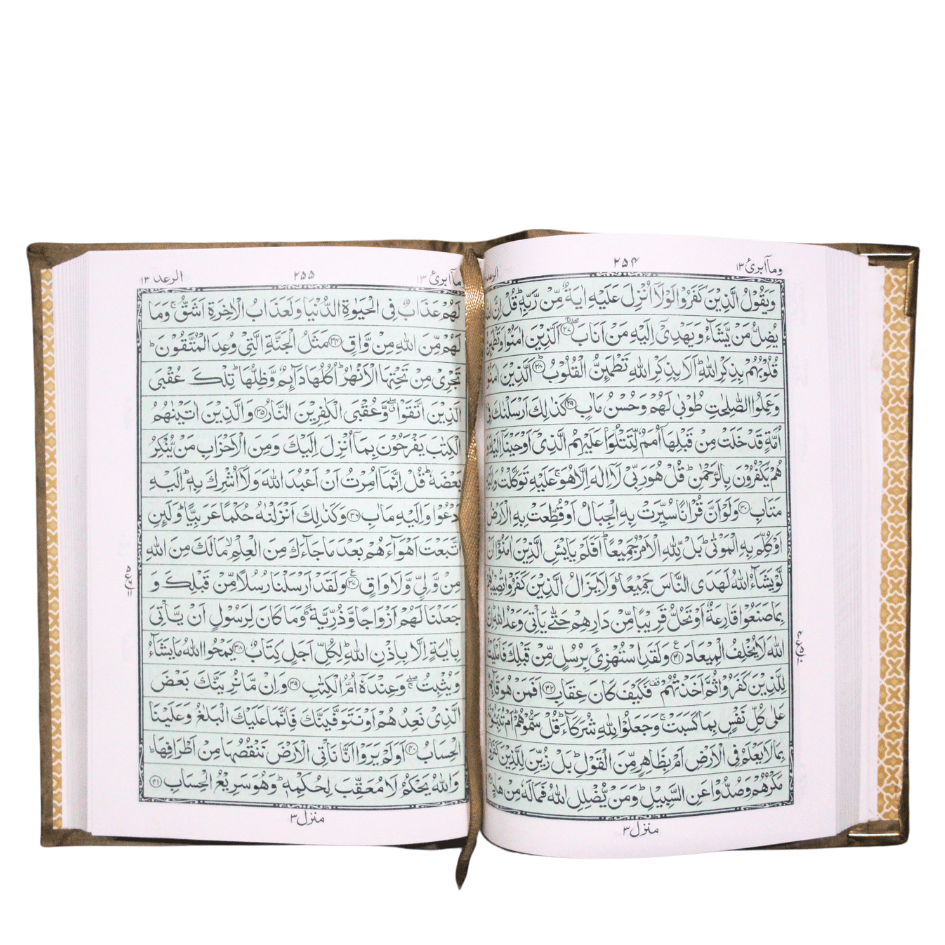 وماابرئ ۱۳
۲۵۴
وَيَقُوْلُ الَّذِيْنَ كَفَرُوْا لَوْلَاۤ اُنْزِلَ عَلَيْهِ اٰيَةٌ مِّنْ رَّبِّهٖ ؕ قُلْ اِنَّ
يُضِلُّ مَنْ يَّشَآءُ وَيَهْدِيْۤ اِلَيْهِ مَنْ اَنَابَ ﴿۲۷﴾ اَلَّذِيْنَ اٰمَنُوْا
قُلُوْبُهُمْ بِذِكْرِ اللّٰهِ ؕ اَلَا بِذِكْرِ اللّٰهِ تَطْمَئِنُّ الْقُلُوْبُ ﴿۲۸﴾ اَلَّذِيْنَ
وَعَمِلُوا الصّٰلِحٰتِ طُوْبٰى لَهُمْ وَحُسْنُ مَاٰبٍ ﴿۲۹﴾ كَذٰلِكَ اَرْسَلْنٰكَ
اُمَّةٍ قَدْ خَلَتْ مِنْ قَبْلِهَاۤ اُمَمٌ لِّتَتْلُوَا۟ عَلَيْهِمُ الَّذِيْۤ اَوْحَيْنَاۤ
هُمْ يَكْفُرُوْنَ بِالرَّحْمٰنِ ؕ قُلْ هُوَ رَبِّيْ لَاۤ اِلٰهَ اِلَّا هُوَ ۚ عَلَيْهِ تَوَكَّلْتُ
مَتَابِ ﴿۳۰﴾ وَلَوْ اَنَّ قُرْاٰنًا سُيِّرَتْ بِهِ الْجِبَالُ اَوْ قُطِّعَتْ بِهِ الْاَرْضُ
اَوْ كُلِّمَ بِهِ الْمَوْتٰى ؕ بَلْ لِّلّٰهِ الْاَمْرُ جَمِيْعًا ؕ اَفَلَمْ يَايْـَٔسِ الَّذِيْنَ اٰمَنُوْۤا
لَّوْ يَشَآءُ اللّٰهُ لَهَدَى النَّاسَ جَمِيْعًا ؕ وَلَا يَزَالُ الَّذِيْنَ كَفَرُوْا
بِمَا صَنَعُوْا قَارِعَةٌ اَوْ تَحُلُّ قَرِيْبًا مِّنْ دَارِهِمْ حَتّٰى يَاْتِيَ وَعْدُ اللّٰهِ
اللّٰهَ لَا يُخْلِفُ الْمِيْعَادَ ﴿۳۱﴾ وَلَقَدِ اسْتُهْزِئَ بِرُسُلٍ مِّنْ قَبْلِكَ
لِلَّذِيْنَ كَفَرُوْا ثُمَّ اَخَذْتُهُمْ ۟ فَكَيْفَ كَانَ عِقَابِ ﴿۳۲﴾ اَفَمَنْ هُوَ
عَلٰى كُلِّ نَفْسٍۭ بِمَا كَسَبَتْ ۚ وَجَعَلُوْا لِلّٰهِ شُرَكَآءَ ؕ قُلْ سَمُّوْهُمْ ؕ
بِمَا لَا يَعْلَمُ فِى الْاَرْضِ اَمْ بِظَاهِرٍ مِّنَ الْقَوْلِ ؕ بَلْ زُيِّنَ لِلَّذِيْنَ
مَكْرُهُمْ وَصُدُّوْا عَنِ السَّبِيْلِ ؕ وَمَنْ يُّضْلِلِ اللّٰهُ فَمَا لَهٗ مِنْ
منزل ۳
ماابرئ ۱۳
۲۵۵
الرعد ۱۳
لَهُمْ عَذَابٌ فِى الْحَيٰوةِ الدُّنْيَا وَلَعَذَابُ الْاٰخِرَةِ اَشَقُّ ۚ وَمَا
لَهُمْ مِّنَ اللّٰهِ مِنْ وَّاقٍ ﴿۳۴﴾ مَثَلُ الْجَنَّةِ الَّتِيْ وُعِدَ الْمُتَّقُوْنَ ؕ
تَجْرِيْ مِنْ تَحْتِهَا الْاَنْهٰرُ ؕ اُكُلُهَا دَآئِمٌ وَّظِلُّهَا ؕ تِلْكَ عُقْبَى
الَّذِيْنَ اتَّقَوْا ۖ وَّعُقْبَى الْكٰفِرِيْنَ النَّارُ ﴿۳۵﴾ وَالَّذِيْنَ اٰتَيْنٰهُمُ
الْكِتٰبَ يَفْرَحُوْنَ بِمَاۤ اُنْزِلَ اِلَيْكَ وَمِنَ الْاَحْزَابِ مَنْ يُّنْكِرُ
بَعْضَهٗ ؕ قُلْ اِنَّمَاۤ اُمِرْتُ اَنْ اَعْبُدَ اللّٰهَ وَلَاۤ اُشْرِكَ بِهٖ ؕ اِلَيْهِ
اَدْعُوْا وَاِلَيْهِ مَاٰبِ ﴿۳۶﴾ وَكَذٰلِكَ اَنْزَلْنٰهُ حُكْمًا عَرَبِيًّا ؕ وَلَئِنِ
اتَّبَعْتَ اَهْوَآءَهُمْ بَعْدَ مَا جَآءَكَ مِنَ الْعِلْمِ ۙ مَا لَكَ مِنَ اللّٰهِ
مِنْ وَّلِيٍّ وَّلَا وَاقٍ ﴿۳۷﴾ وَلَقَدْ اَرْسَلْنَا رُسُلًا مِّنْ قَبْلِكَ وَ
جَعَلْنَا لَهُمْ اَزْوَاجًا وَّذُرِّيَّةً ؕ وَمَا كَانَ لِرَسُوْلٍ اَنْ يَّاْتِيَ
بِاٰيَةٍ اِلَّا بِاِذْنِ اللّٰهِ ؕ لِكُلِّ اَجَلٍ كِتَابٌ ﴿۳۸﴾ يَمْحُوا اللّٰهُ مَا يَشَآءُ
وَيُثْبِتُ ۖ وَعِنْدَهٗۤ اُمُّ الْكِتٰبِ ﴿۳۹﴾ وَاِنْ مَّا نُرِيَنَّكَ بَعْضَ
الَّذِيْ نَعِدُهُمْ اَوْ نَتَوَفَّيَنَّكَ فَاِنَّمَا عَلَيْكَ الْبَلٰغُ وَعَلَيْنَا
الْحِسَابُ ﴿۴۰﴾ اَوَلَمْ يَرَوْا اَنَّا نَاْتِى الْاَرْضَ نَنْقُصُهَا مِنْ اَطْرَافِهَا ؕ
وَاللّٰهُ يَحْكُمُ لَا مُعَقِّبَ لِحُكْمِهٖ ؕ وَهُوَ سَرِيْعُ الْحِسَابِ ﴿۴۱﴾
منزل ۳